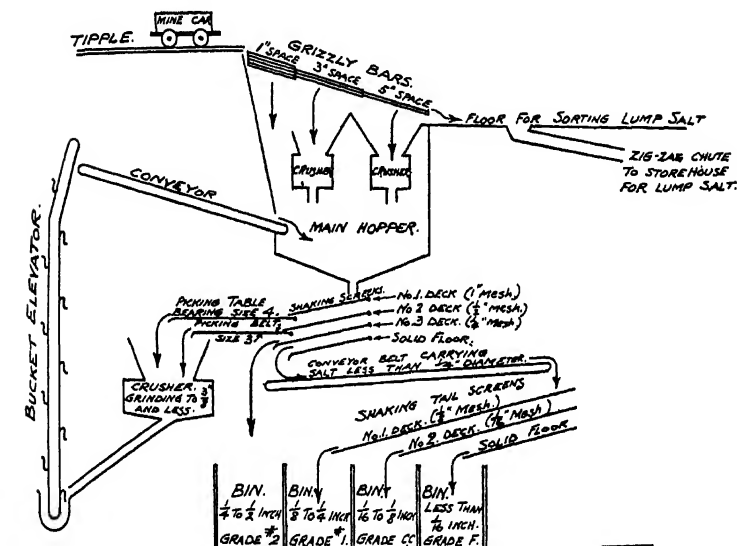 MINE CAR
TIPPLE.
GRIZZLY BARS.
1" SPACE
3" SPACE
5" SPACE
FLOOR FOR SORTING LUMP SALT
ZIG-ZAG CHUTE
TO STOREHOUSE
FOR LUMP SALT.
CRUSHER
CRUSHER
CONVEYOR
MAIN HOPPER.
BUCKET ELEVATOR.
PICKING TABLE
BEARING SIZE 4.
SHAKING SCREENS.
PICKING BELT.
SIZE 3
No.1. DECK (1" MESH.)
No 2 DECK (½" MESH.)
No.3 DECK.
SOLID FLOOR.
CONVEYOR BELT CARRYING
SALT LESS THAN DIAMETER.
CRUSHER.
GRINDING TO
AND LESS.
SHAKING TAIL SCREENS
No.1. DECK. (⅛" MESH.)
No 2. DECK
SOLID FLOOR
BIN.
¼ TO ½ INCH
GRADE #2
BIN.
⅛ TO ¼ INCH
GRADE #1.
BIN.
1/16 TO ⅛ INCH
GRADE CC
BIN.
LESS THAN
1/16 INCH.
GRADE F.